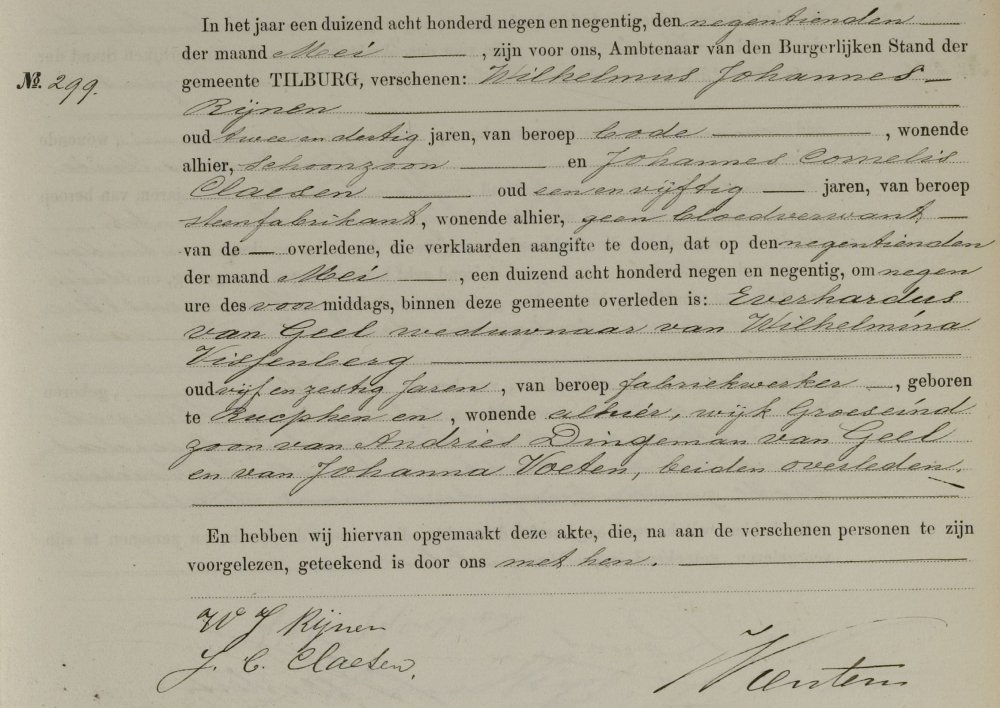 In het jaar een duizend acht honderd negen en negentig, den negentienden
der maand Mei, zijn voor ons, Ambtenaar van den Burgerlijken Stand der
№. 299. gemeente TILBURG, verschenen: Wilhelmus Johannes
Rijnen
oud twee en dertig jaren, van beroep bode, wonende
alhier, schoonzoon en Johannes Cornelis
Claesen oud een en vijftig jaren, van beroep
steenfabrikant, wonende alhier, geen bloedverwant
van de overledene, die verklaarden aangifte te doen, dat op den negentienden
der maand Mei, een duizend acht honderd negen en negentig, om negen
ure des voormiddags, binnen deze gemeente overleden is: Everhardus
van Geel weduwnaar van Wilhelmina
Vissenberg
oud vijf en zestig jaren, van beroep fabriekwerker, geboren
te Rucphen en, wonende alhier, wijk Groeseind
zoon van Andries Dingeman van Geel
en van Johanna Voeten, beiden overleden.
En hebben wij hiervan opgemaakt deze akte, die, na aan de verschenen personen te zijn
voorgelezen, geteekend is door ons met hen.
W J Rijnen
J. C. Claesen.